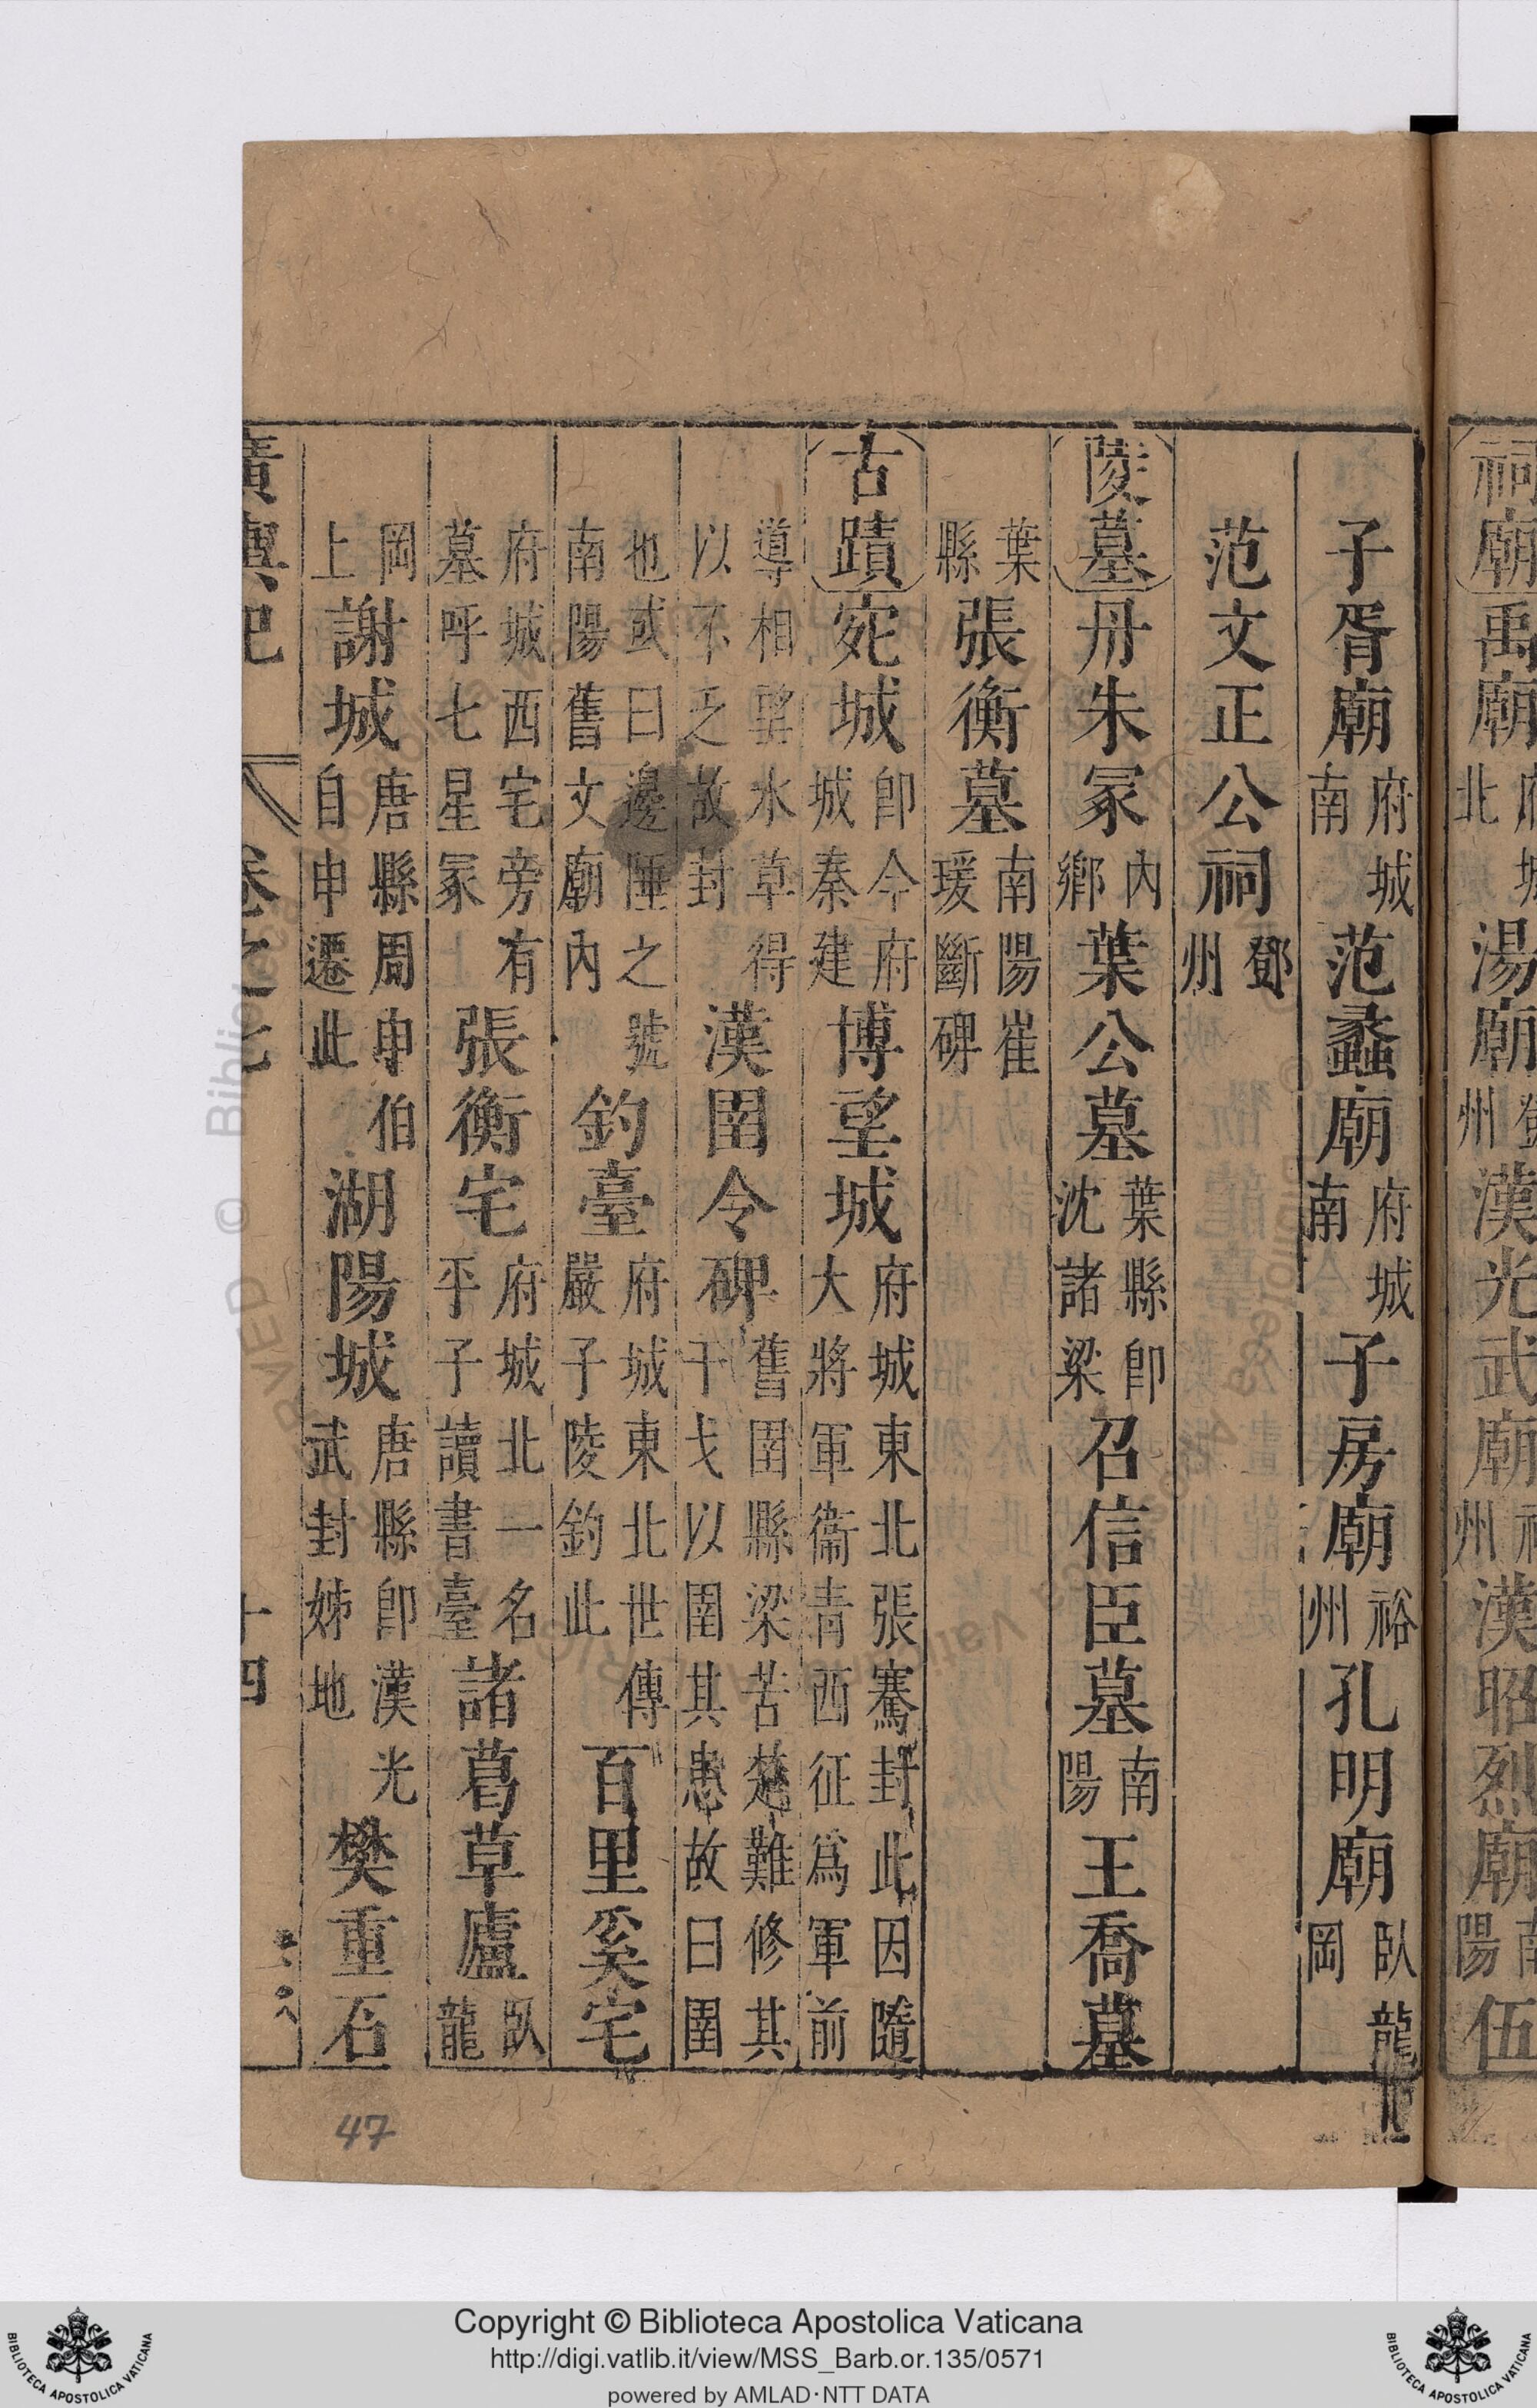 祠廟禹廟 北 湯廟 州 漢光武廟 州 漢昭烈廟 陽 伍
子胥廟府城南范蠡廟府城南子房廟裕州孔明廟臥龍岡
范文正公祠鄧州
陵墓丹朱冢內鄉葉公墓葉縣卽沈諸梁召信臣墓南陽王喬墓
葉縣張衡墓南陽崔瑗斷碑
古蹟宛城卽今府城秦建博望城府城東北張騫封此因隨大將軍衞青西征爲軍前
導相望水草得以不乏故封漢圉令碑舊圉縣梁苦楚難修其干戈以圉其患故曰圉
也或曰邊陲之號南陽舊文廟內釣臺府城東北世傳嚴子陵釣此百里奚宅
府城西宅旁有墓呼七星冢上張衡宅府城北一名平子讀書臺諸葛草廬臥龍
岡上謝城唐縣周申伯自申遷此湖陽城唐縣卽漢光武封姊地樊重石
廣輿記 卷之七 十四
47
Copyright © Biblioteca Apostolica Vaticana
http://digi.vatlib.it/view/MSS_Barb.or.135/0571
powered by AMLAD·NTT DATA
BIBLIOTECA APOSTOLICA VATICANA
BIBLIOTECA APOSTOLICA VATICANA